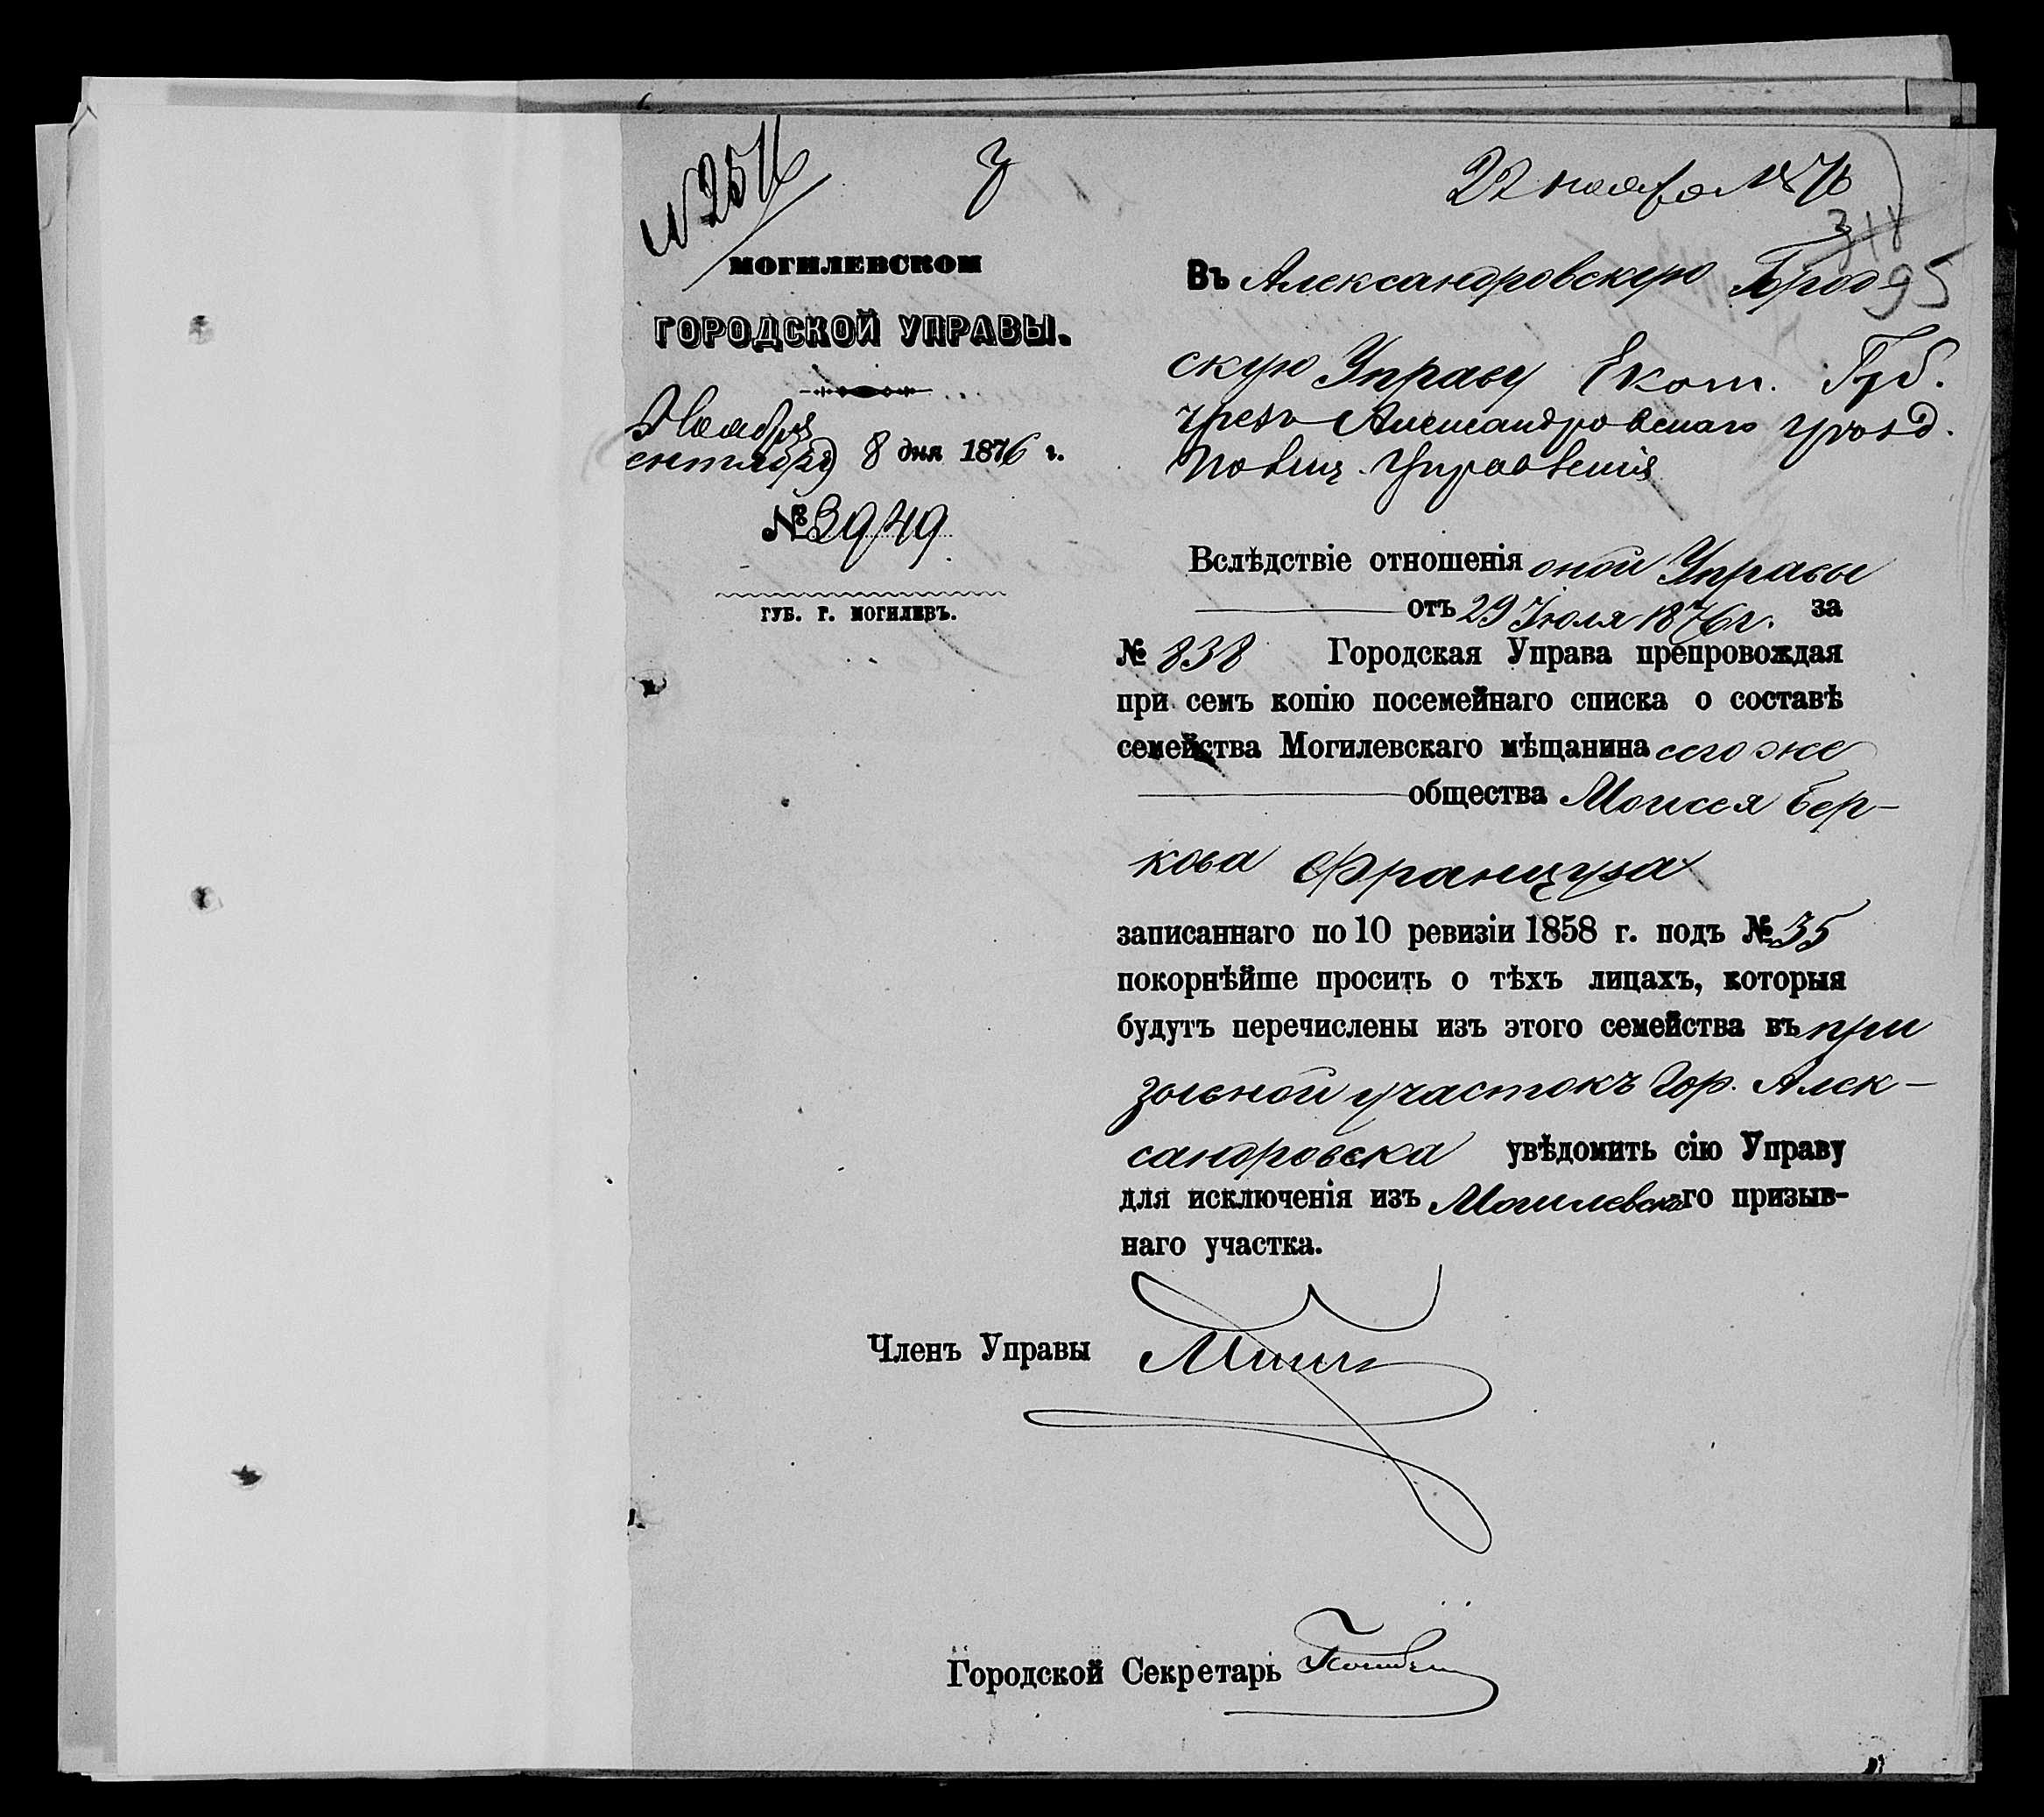 № 2516
3
22 ноября №
318
95
МОГИЛЕВСКОЙ
ГОРОДСКОЙ УПРАВЫ.
Ноября
сентября 8 дня 1876 г.
№ 3949
ГУБ. Г. МОГИЛЕВЪ.
Въ Александровскую Город-
скую Управу Екат. Губ.
чрезъ Александровскаго уѣзд.
Полиц. Управленія
Вслѣдствіе отношенія оной Управы
отъ 29 Іюля 1876 г. за
№ 838 Городская Управа препровождая
при семъ копію посемейнаго списка о составѣ
семейства Могилевскаго мѣщанина сего же
общества Моисея Бер-
кова Француза
записаннаго по 10 ревизіи 1858 г. подъ № 35
покорнѣйше просить о тѣхъ лицахъ, которыя
будутъ перечислены изъ этого семейства въ при
зывной участокъ Гор. Алек-
сандровска увѣдомить сію Управу
для исключенія изъ Могилевскаго призыв-
наго участка.
Членъ Управы
Городской Секретарь